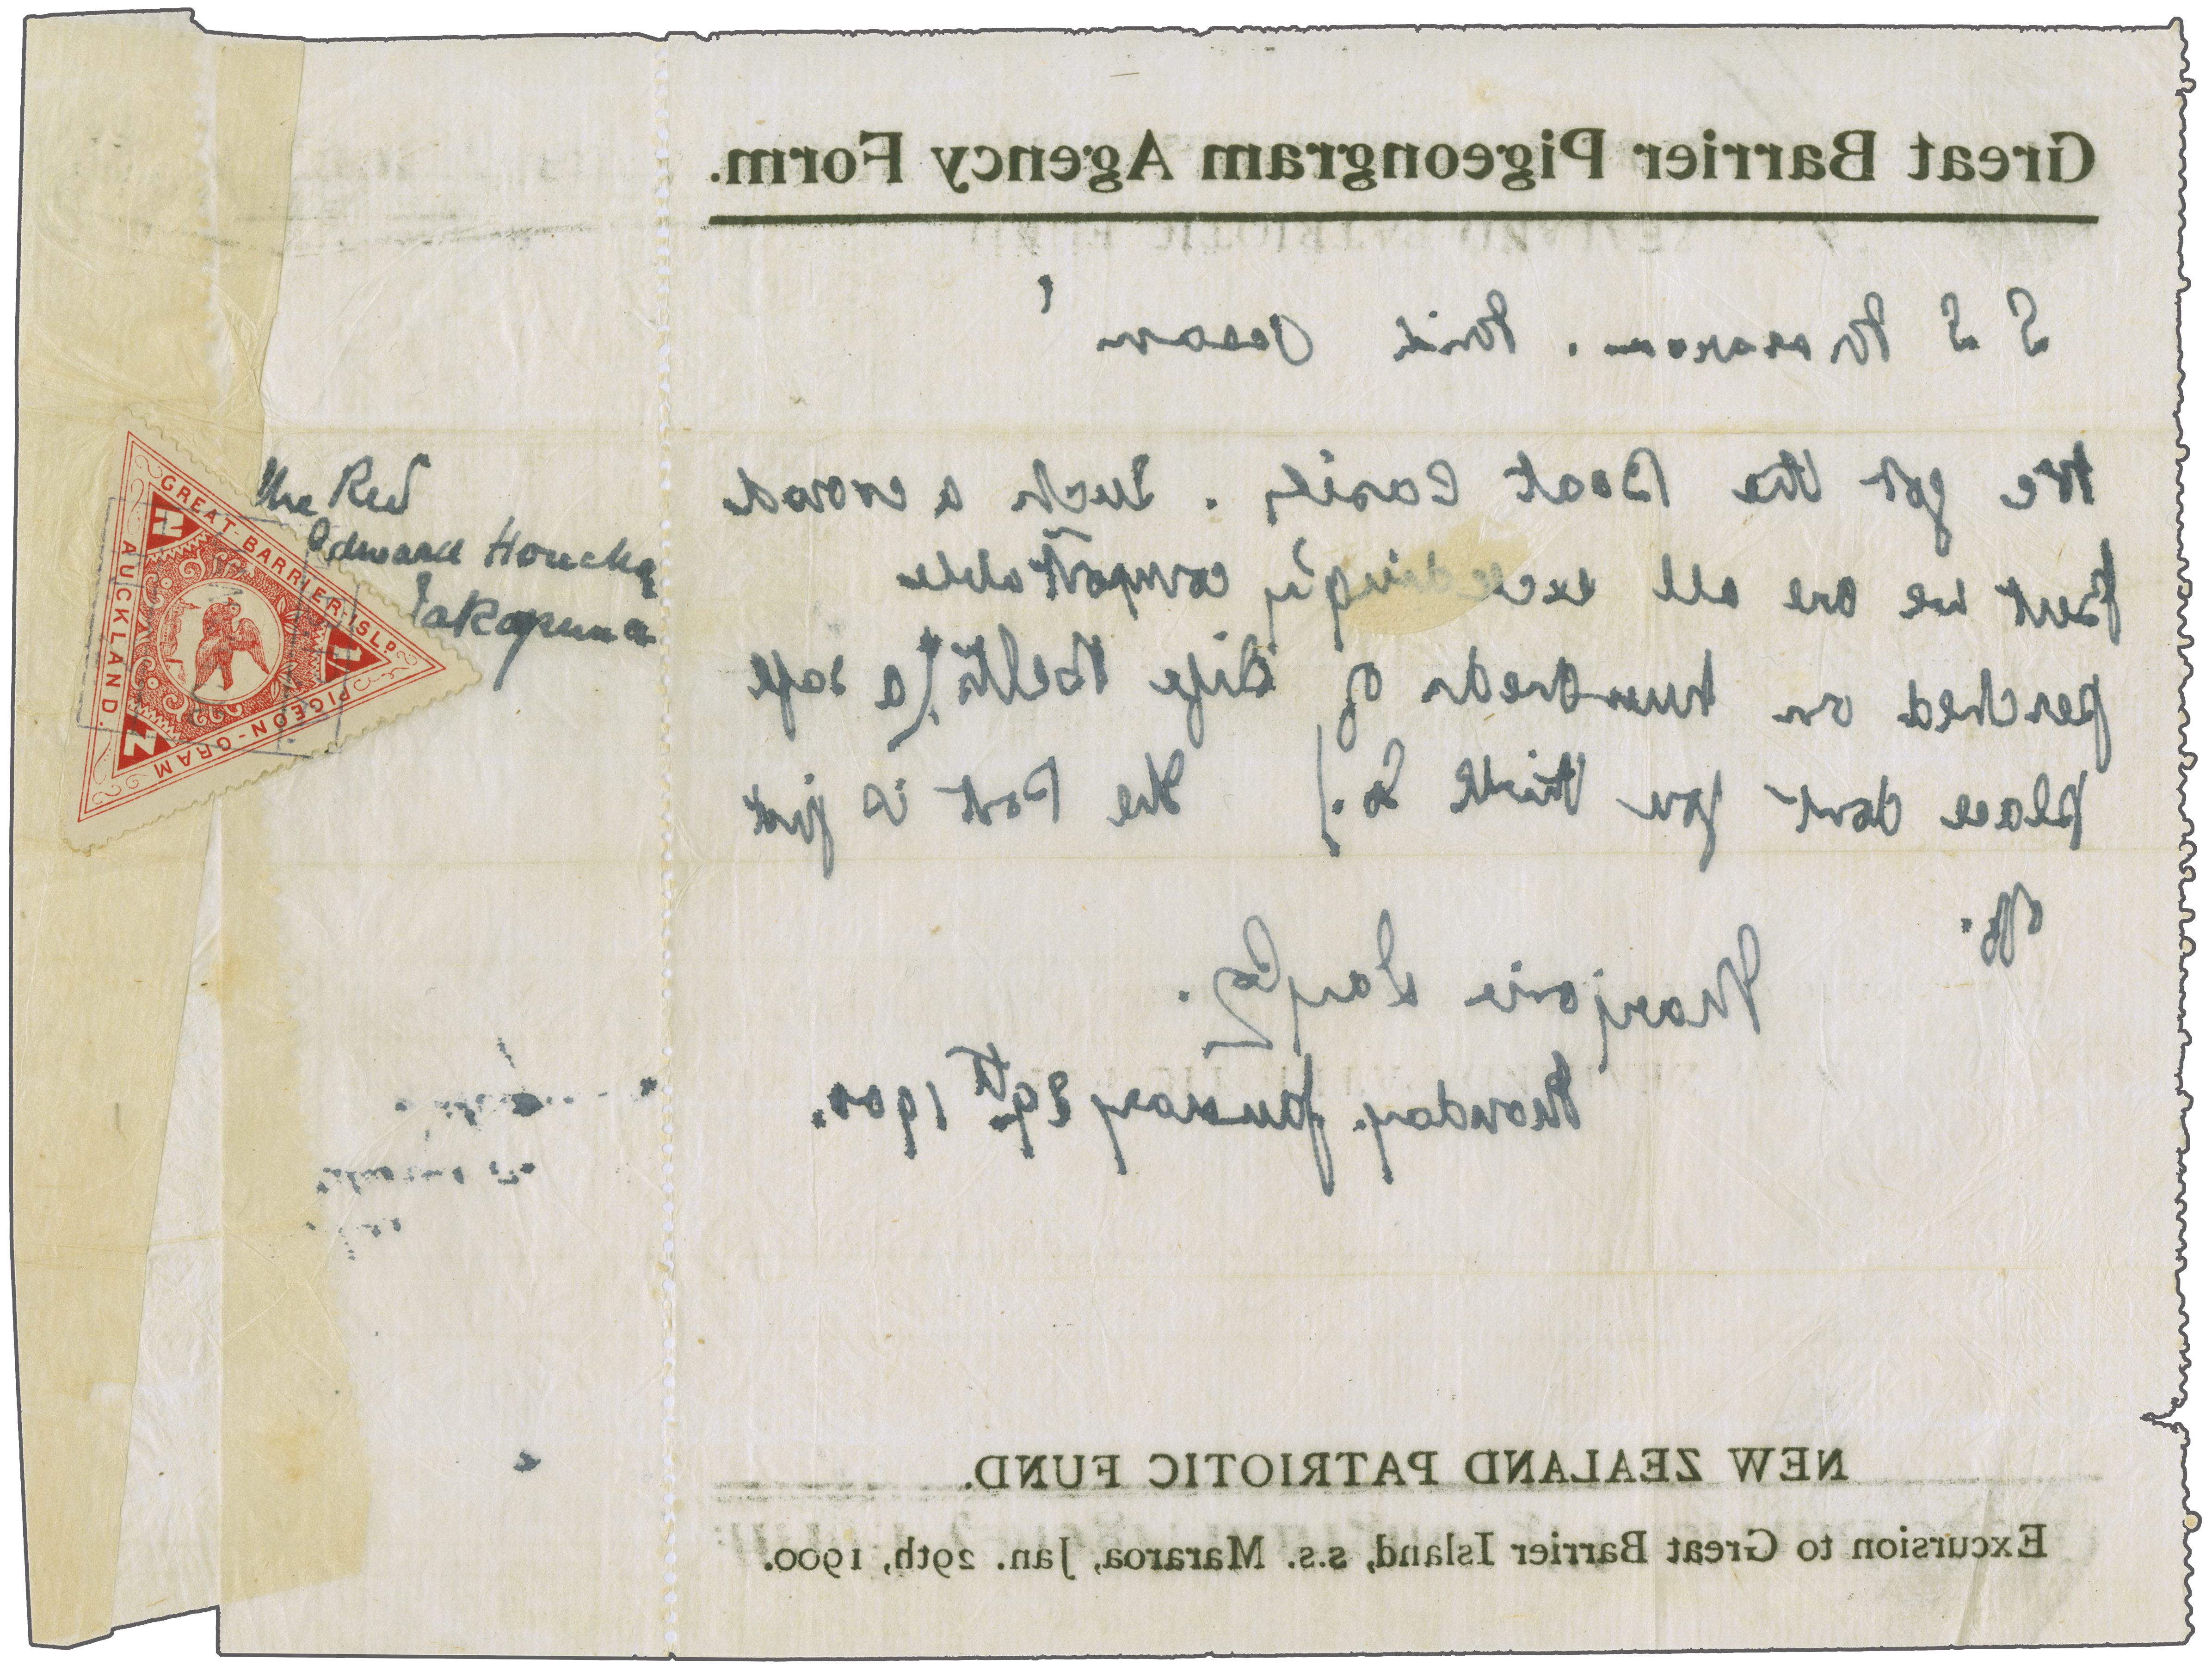 Great Barrier Pigeongram Agency Form.
S S Mararoa. Mid Ocean
We got the Boat Easily. Such a crowd
but we are all exceedingly comfortable
perched on hundreds of Life Belts! (a safe
place dont you think So!) The Post is just
off.
Marjorie
Monday. January 29th 1900.
NEW ZEALAND PATRIOTIC FUND.
Excursion to Great Barrier Island, s.s. Mararoa, Jan. 29th, 1900.
The Rev
Edward
Takapuna
GREAT-BARRIER-ISLD
PIGEON-GRAM
AUCKLAND.
N
Z